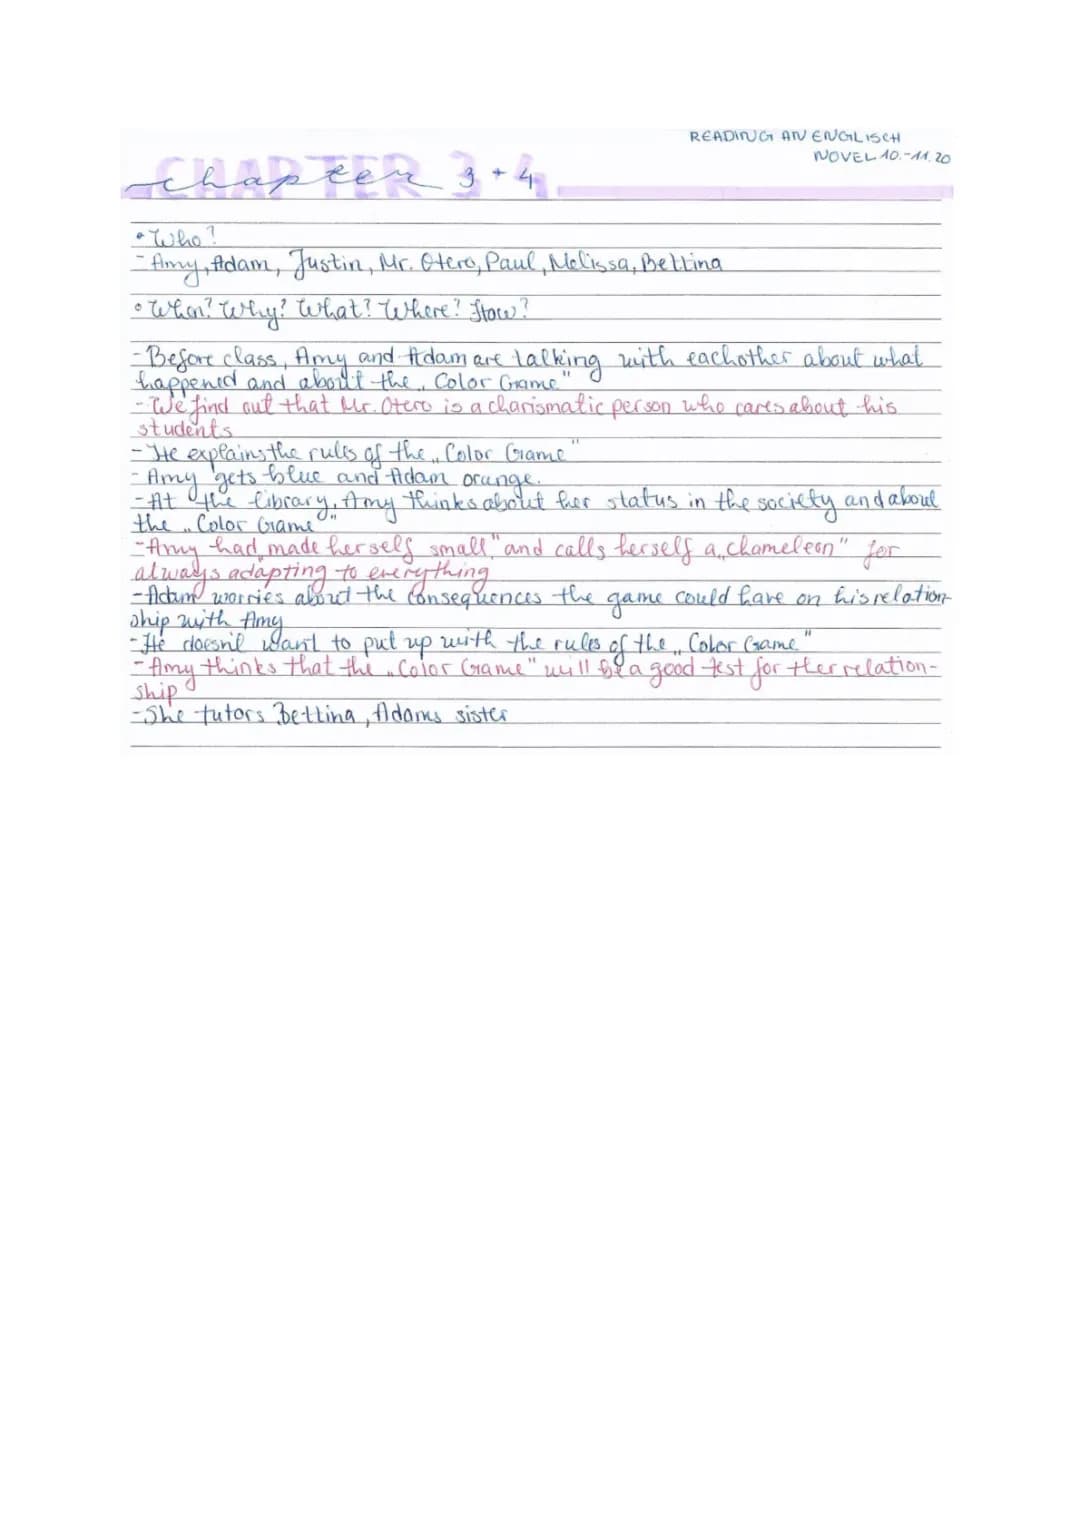 READING AN ENGLISCH
NOVEL 10.-11.20
CHAPTER 3+4
chapter 3+4
• Who?
- Amy, Adam, Justin, Mr. Otero, Paul, Melissa, Bettina
• When? Why? What? Where? How?
- Before class, Amy and Adam are talking with eachother about what
happened and about the „Color Game"
- We find out that Mr. Otero is a charismatic person who cares about his
students
- He explains the rules of the „Color Game"
- Amy gets blue and Adam orange.
- At the library, Amy thinks about her status in the society and about
the „Color Game"
- Amy had „made herself small" and calls herself a „chameleon" for
always adapting to everything
- Adam worries about the consequences the game could have on his relation-
ship with Amy
- He doesn't want to put up with the rules of the „Color Game"
- Amy thinks that the „Color Game" will be a good test for ther relation-
ship
- She tutors Bettina, Adams sister